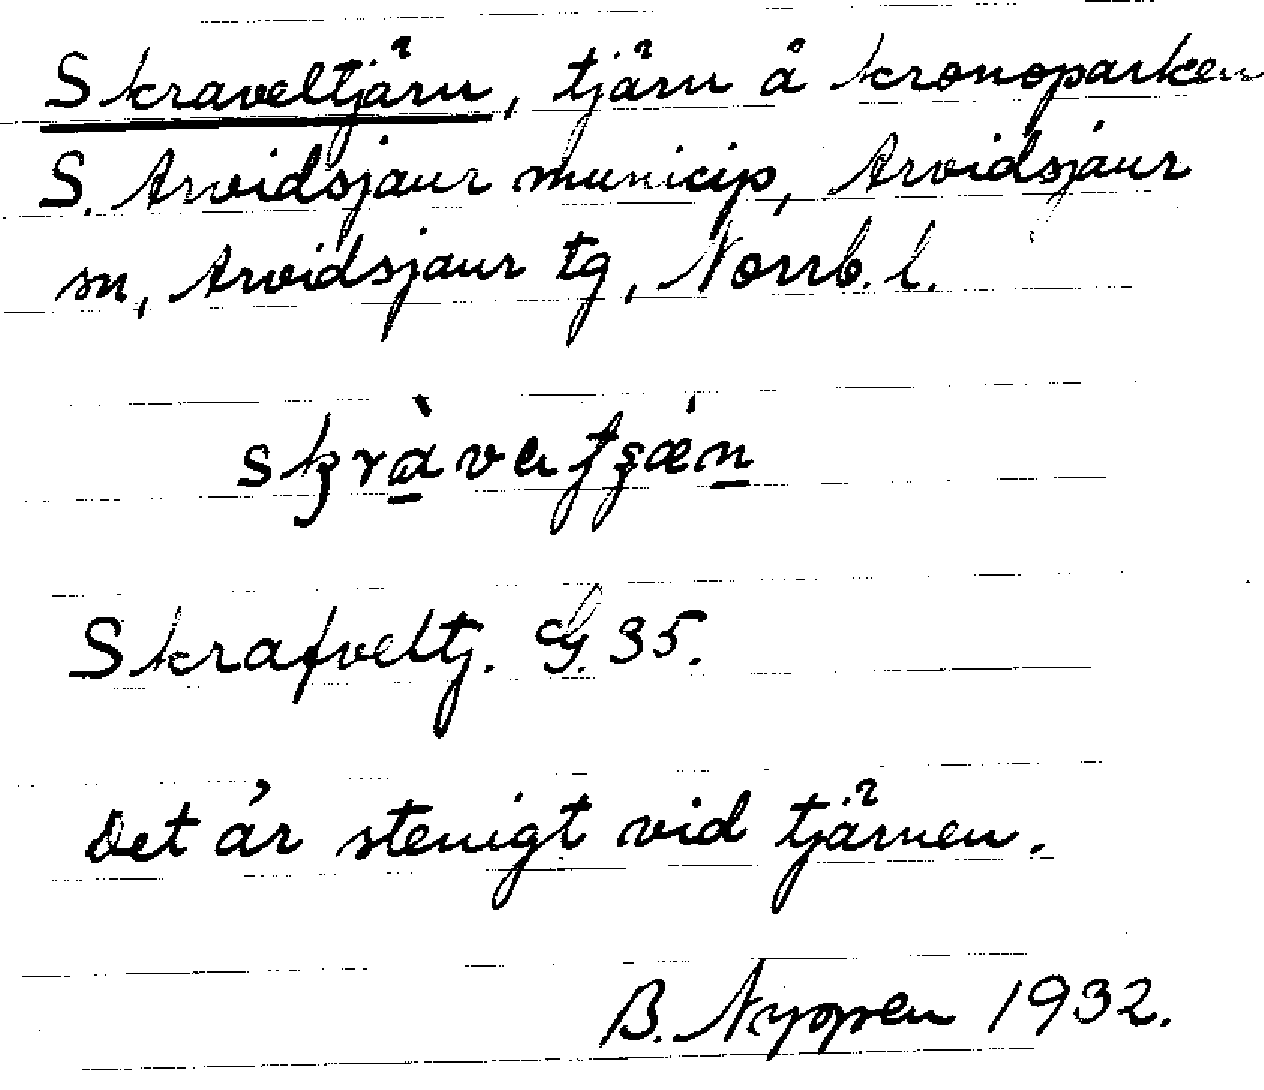 Skraveltjärn, tjärn å kronoparken
S. Arvidsjaur municip, Arvidsjaur
sn, Arvidsjaur tg, Norrb. l.
Skrafveltj. G. 35.
Det är stenigt vid tjärnen.
B. Nyppen 1932.